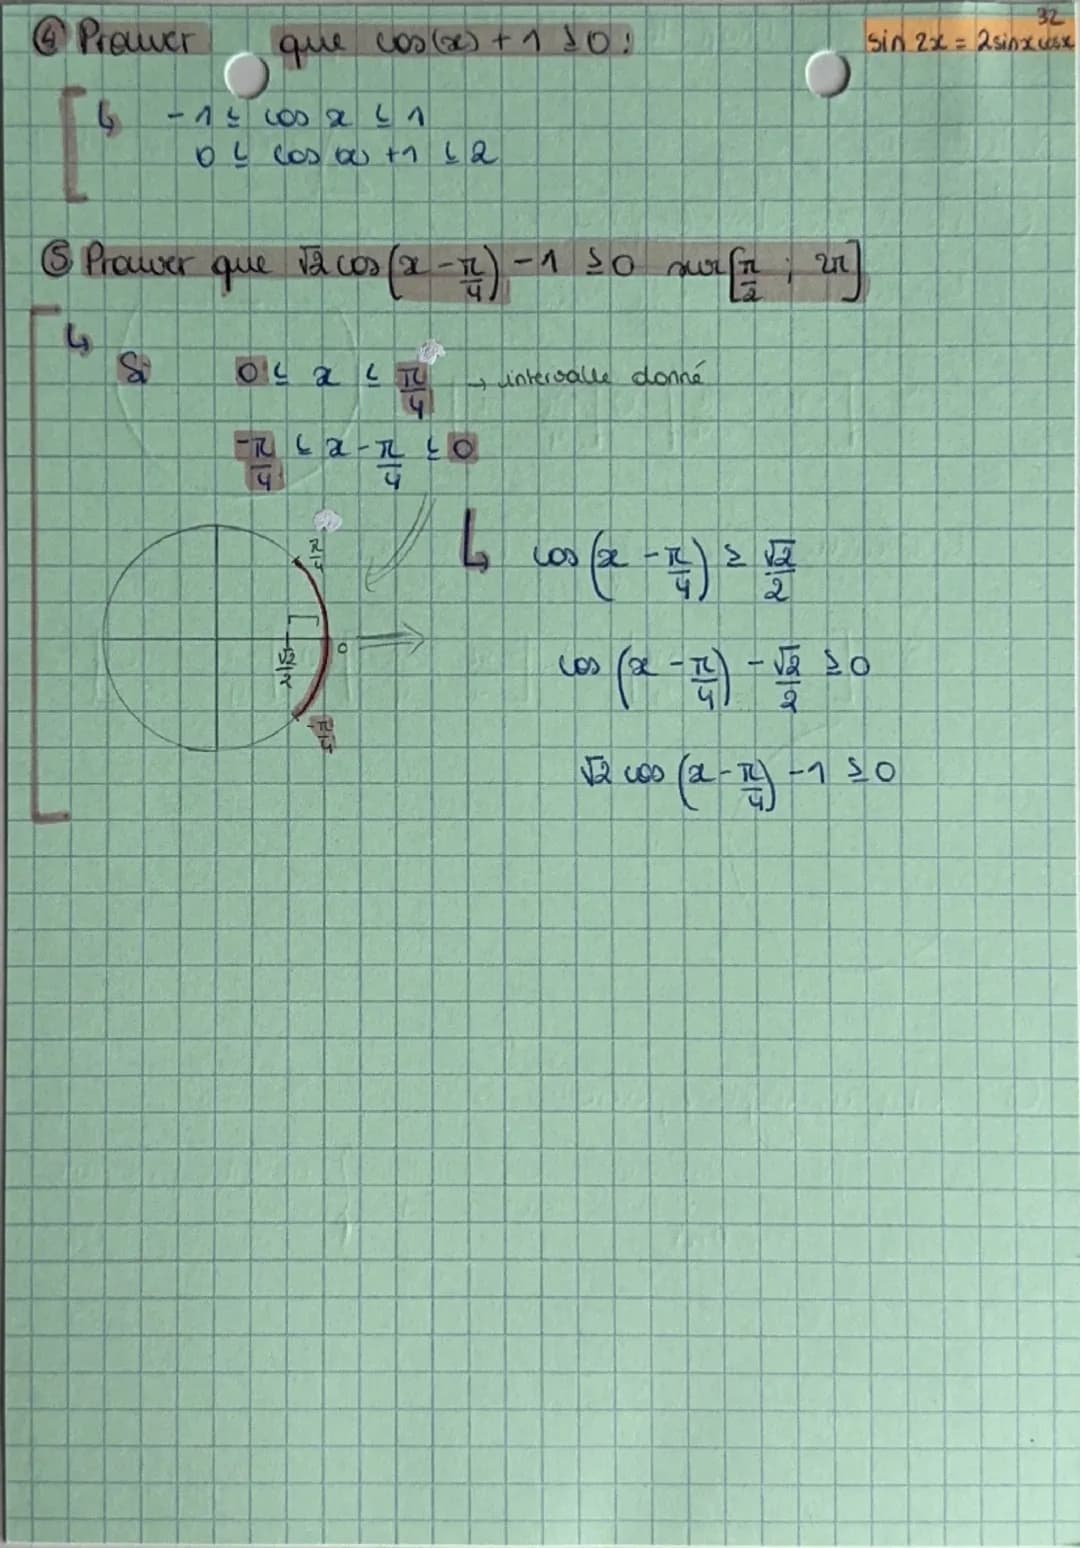 32
sin 2x = 2sinxcosx
④ Prouver que cos(x) + 1 ≥ 0 :
↳ -1 ≤ cos x ≤ 1
0 ≤ cos(x) + 1 ≤ 2
⑤ Prouver que √2 cos(x - π/4) - 1 ≥ 0 sur [π/2 ; 2π]
↳
Si 0 ≤ x ≤ π/4 → intervalle donné
-π/4 ≤ x - π/4 ≤ 0
π/4
√2/2
0
-π/4
↳ cos(x - π/4) ≥ √2/2
cos(x - π/4) - √2/2 ≥ 0
√2 cos(x - π/4) - 1 ≥ 0